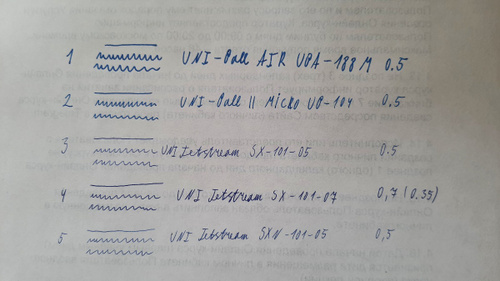 1 UNI-Ball AIR UBA-188M 0.5
2 UNI-Ball II Micro UB-104 0,5
3 UNI Jetstream SX-101-05 0.5
4 UNI Jetstream SX-101-07 0,7 (0.35)
5 UNI Jetstream SXN-101-05 0,5